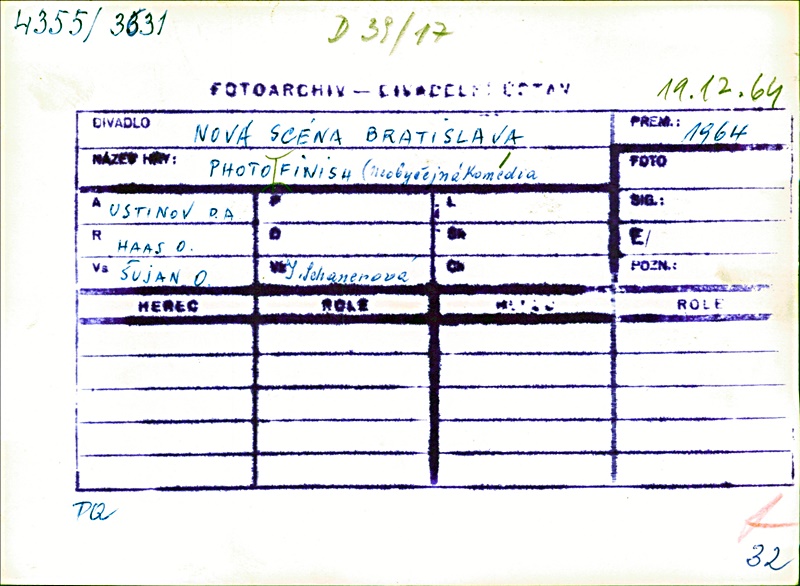 4355/ 3631
D 39/17
FOTOARCHIV — DIVADELNÍ ÚSTAV
19.12.64
DIVADLO NOVÁ SCÉNA BRATISLAVA PREM.: 1964
NÁZEV HRY: PHOTO FINISH (neobyčejná Komédia FOTO
A USTINOV P.A P L SIG.:
R HAAS O. D Sh E/
Vs ŠUJAN O. Schanerová Ch POZN.:
HEREC ROLE HEREC ROLE
PQ
32